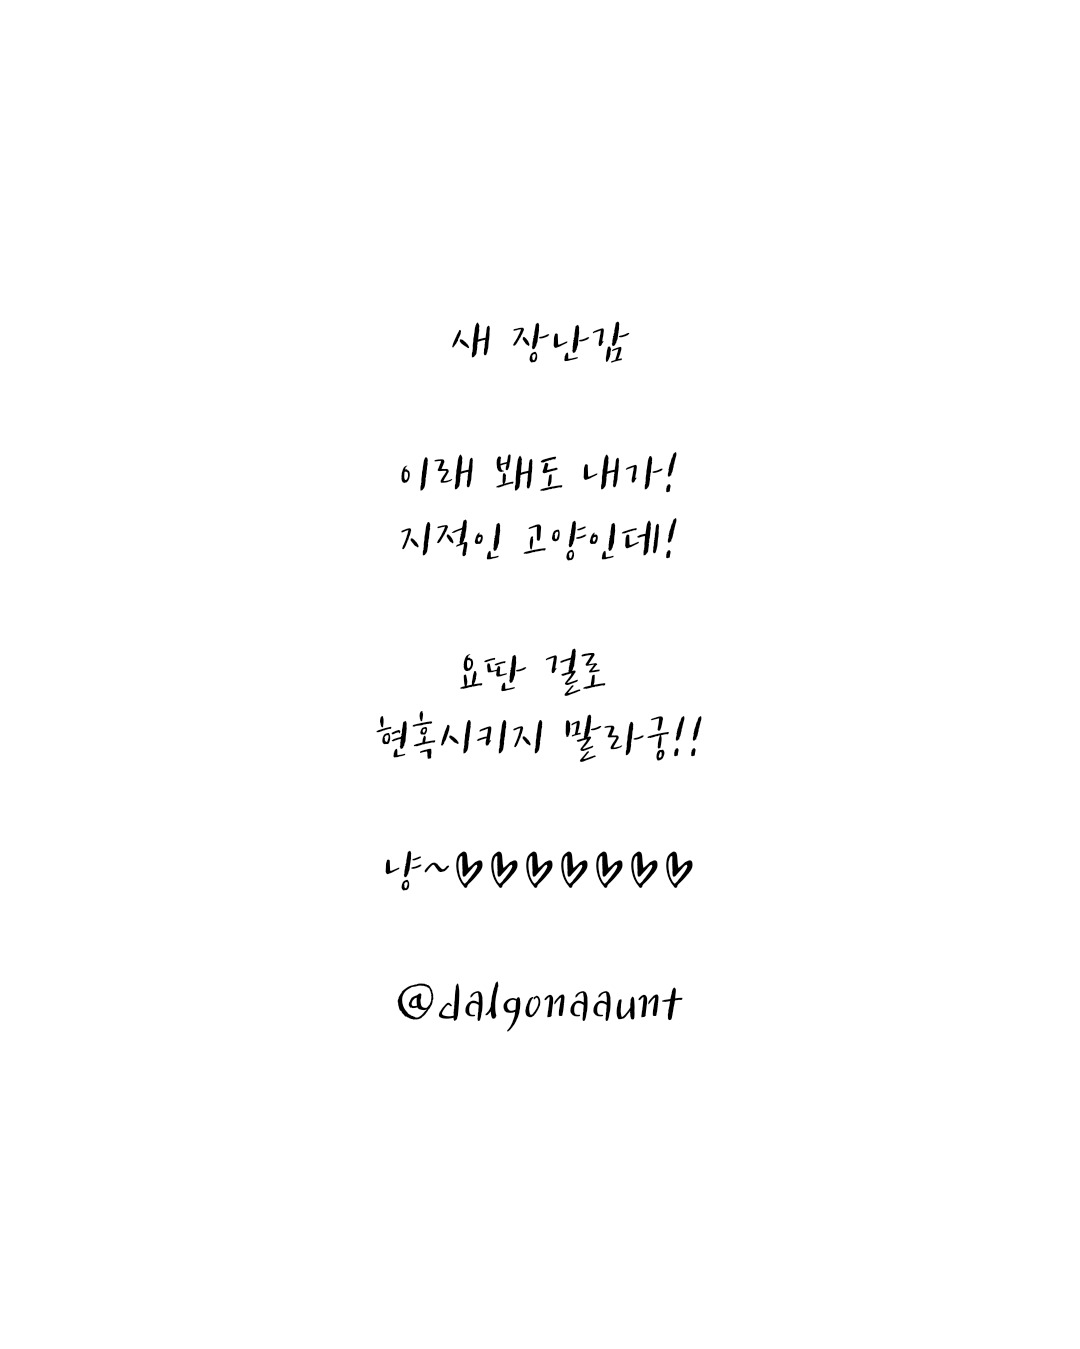 새 장난감
이래 봬도 내가!
지적인 고양인데!
요딴 걸로
현혹시키지 말라궁!!
냥~♥♥♥♥♥♥♥
@dalgonaaunt